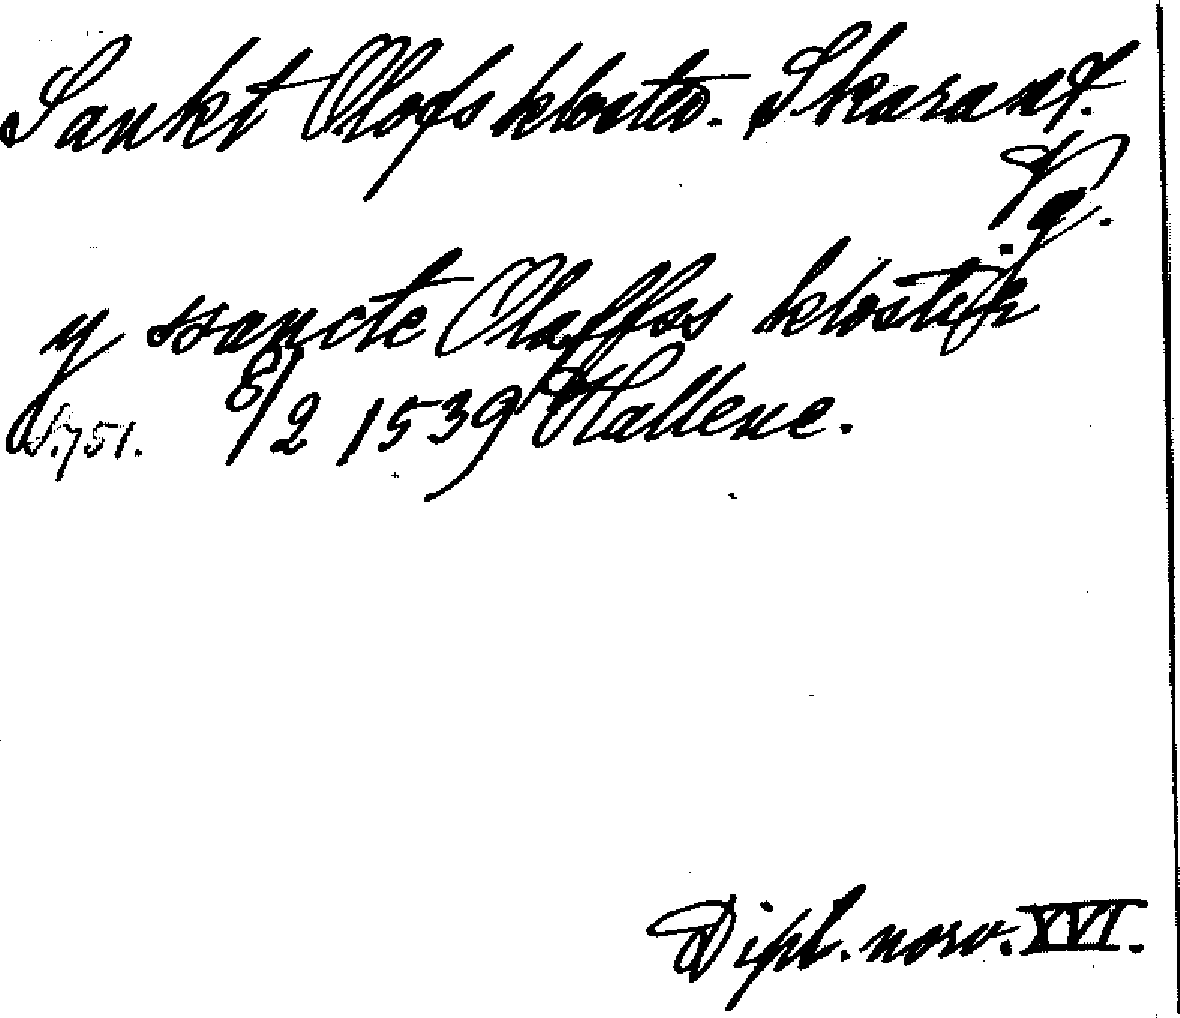 Sankt Olofs kloster. Skara
Vg.
y ssancte Olaffss klostir
S. 751. 8/2 1539 Hallene.
Dipl. norv. XVI.